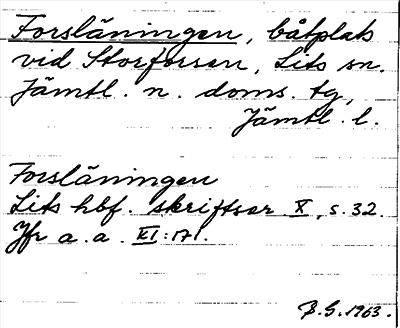 Forsläningen, båtplats
vid Storforsen, Lits sn.
Jämtl. n. doms. tg,
Jämtl. l.
Forsläningen
Lits hbf. skriftser X, s. 32.
Jfr a. a. XI: 171.
B. G. 1963.